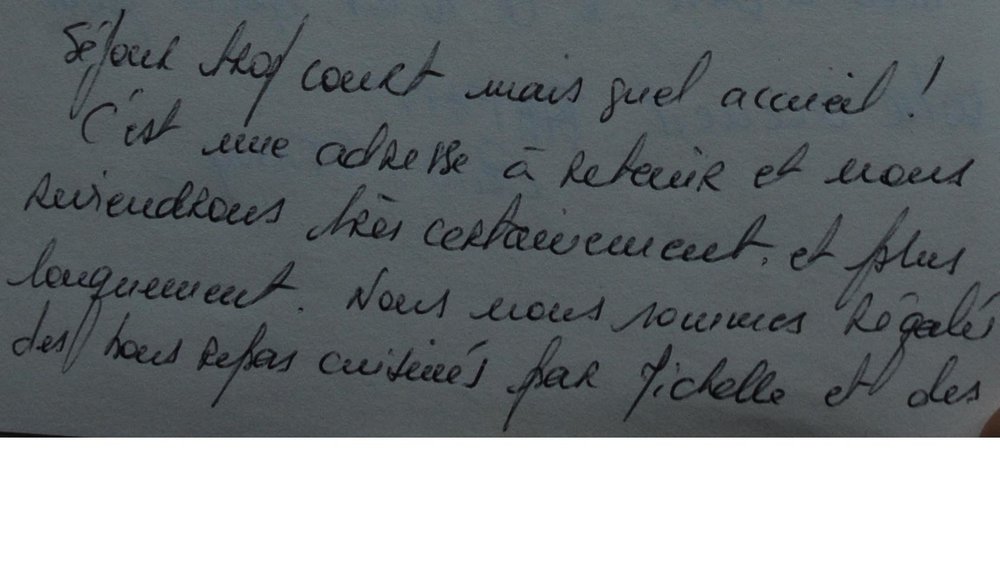 Séjour trop court mais quel accueil !
C'est une adresse à retenir et nous
reviendrons très certainement, et plus
longuement. Nous nous sommes régalés
des bons repas cuisinés par Michelle et des